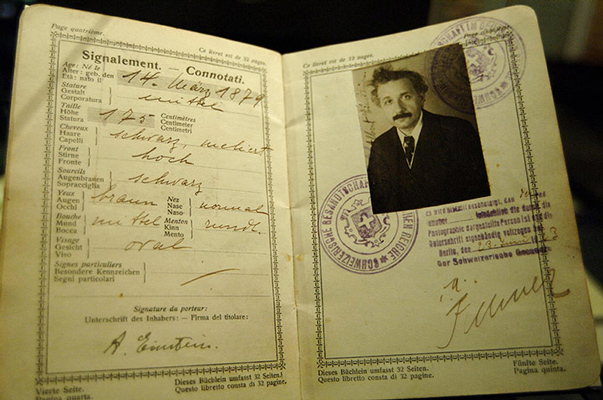 Page quatrième.
Ce livret est de 32 pages.
Signalement. — Connotati.
Age: Né le
Alter: geb. den
Età: nato il
14. März 1879
Stature
Gestalt
Corporatura
mittel
Taille
Höhe
Statura
175
Centimètres
Centimeter
Centimetri
Cheveux
Haare
Capelli
schwarz, meliert
Front
Stirne
Fronte
hoch
Sourcils
Augenbrauen
Sopracciglia
schwarz
Yeux
Augen
Occhi
braun
Nez
Nase
Naso
normal
Bouche
Mund
Bocca
mittel
Menton
Kinn
Mento
rund
Visage
Gesicht
Viso
oval
Signes particuliers
Besondere Kennzeichen
Segni particolari
Signature du porteur:
Unterschrift des Inhabers: — Firma del titolare:
A. Einstein.
Vierte Seite.
Pagina quarta.
Dieses Büchlein umfasst 32 Seiten.
Questo libretto consta di 32 pagine.
Page cinquième.
Ce livret est de 32 pages.
SCHWEIZERISCHE GESANDTSCHAFT
REICHE
Photographie dargestellte Person ist und die
Unterschrift eigenhändig vollzogen hat
Berlin, den
Der Schweizerische Gesandte
Dieses Büchlein umfasst 32 Seiten.
Questo libretto consta di 32 pagine.
Fünfte Seite.
Pagina quinta.